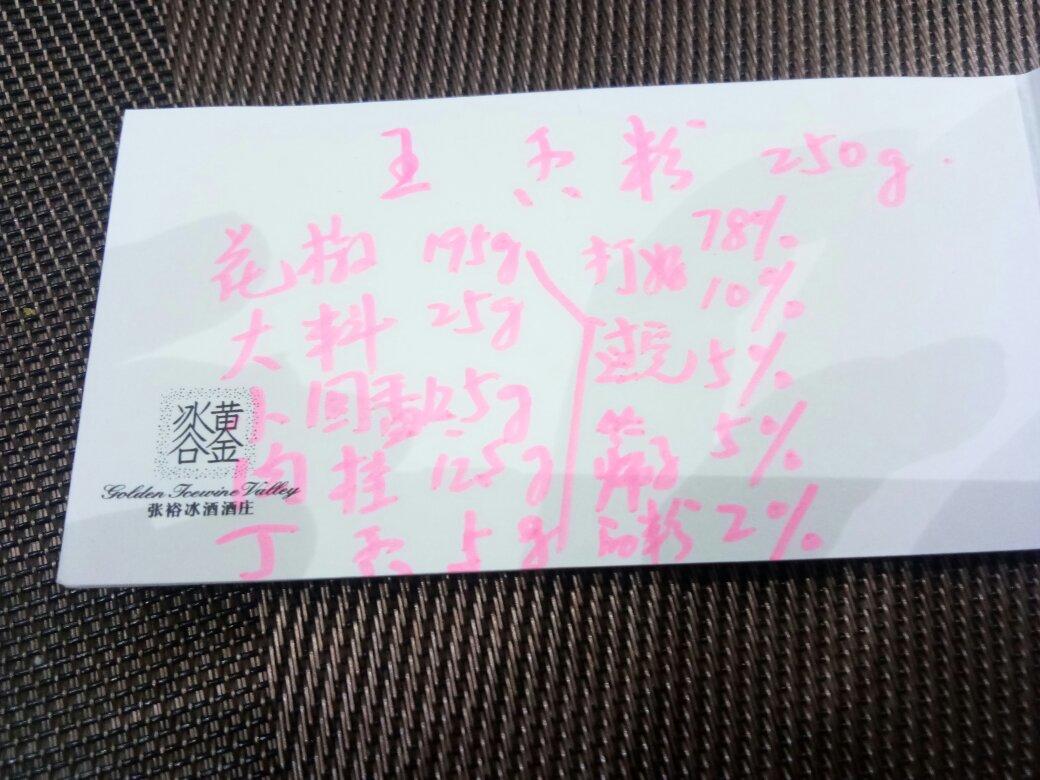 五香粉 250g.
花椒 195g 打好 78%
大料 25g 10%
小回香 12.5g 过完 5%
肉桂 12.5g 筛子 5%
丁香 5g 的粉 2%
黄金冰谷
Golden Icewine Valley
张裕冰酒酒庄